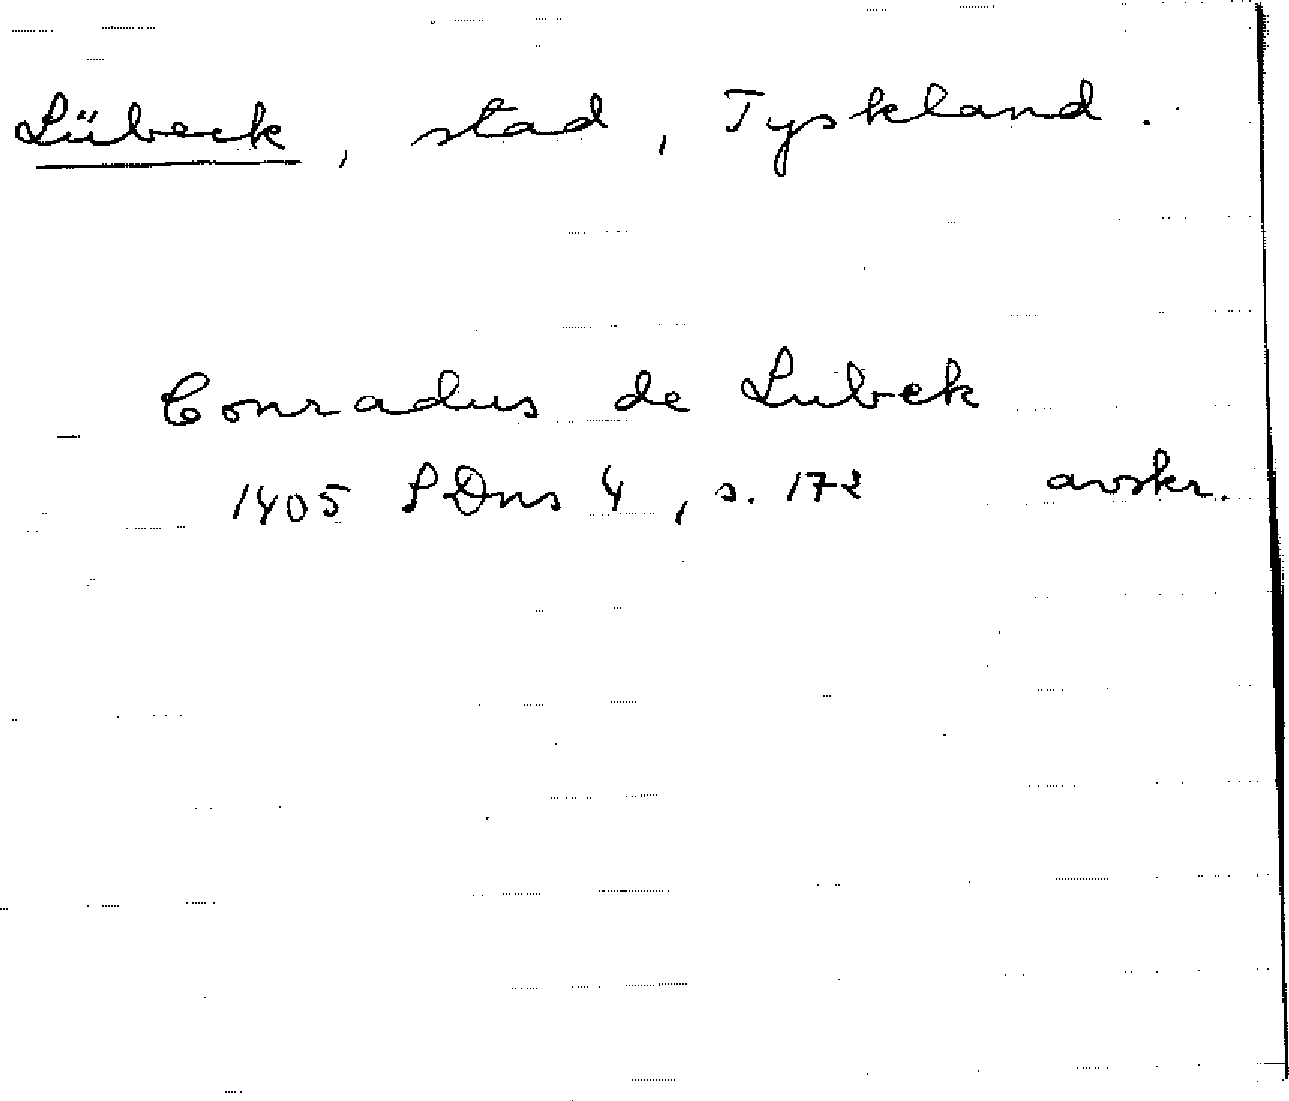 Lübeck, stad, Tyskland.
Conradus de Lubek
1405 SDns 4, s. 172 avskr.